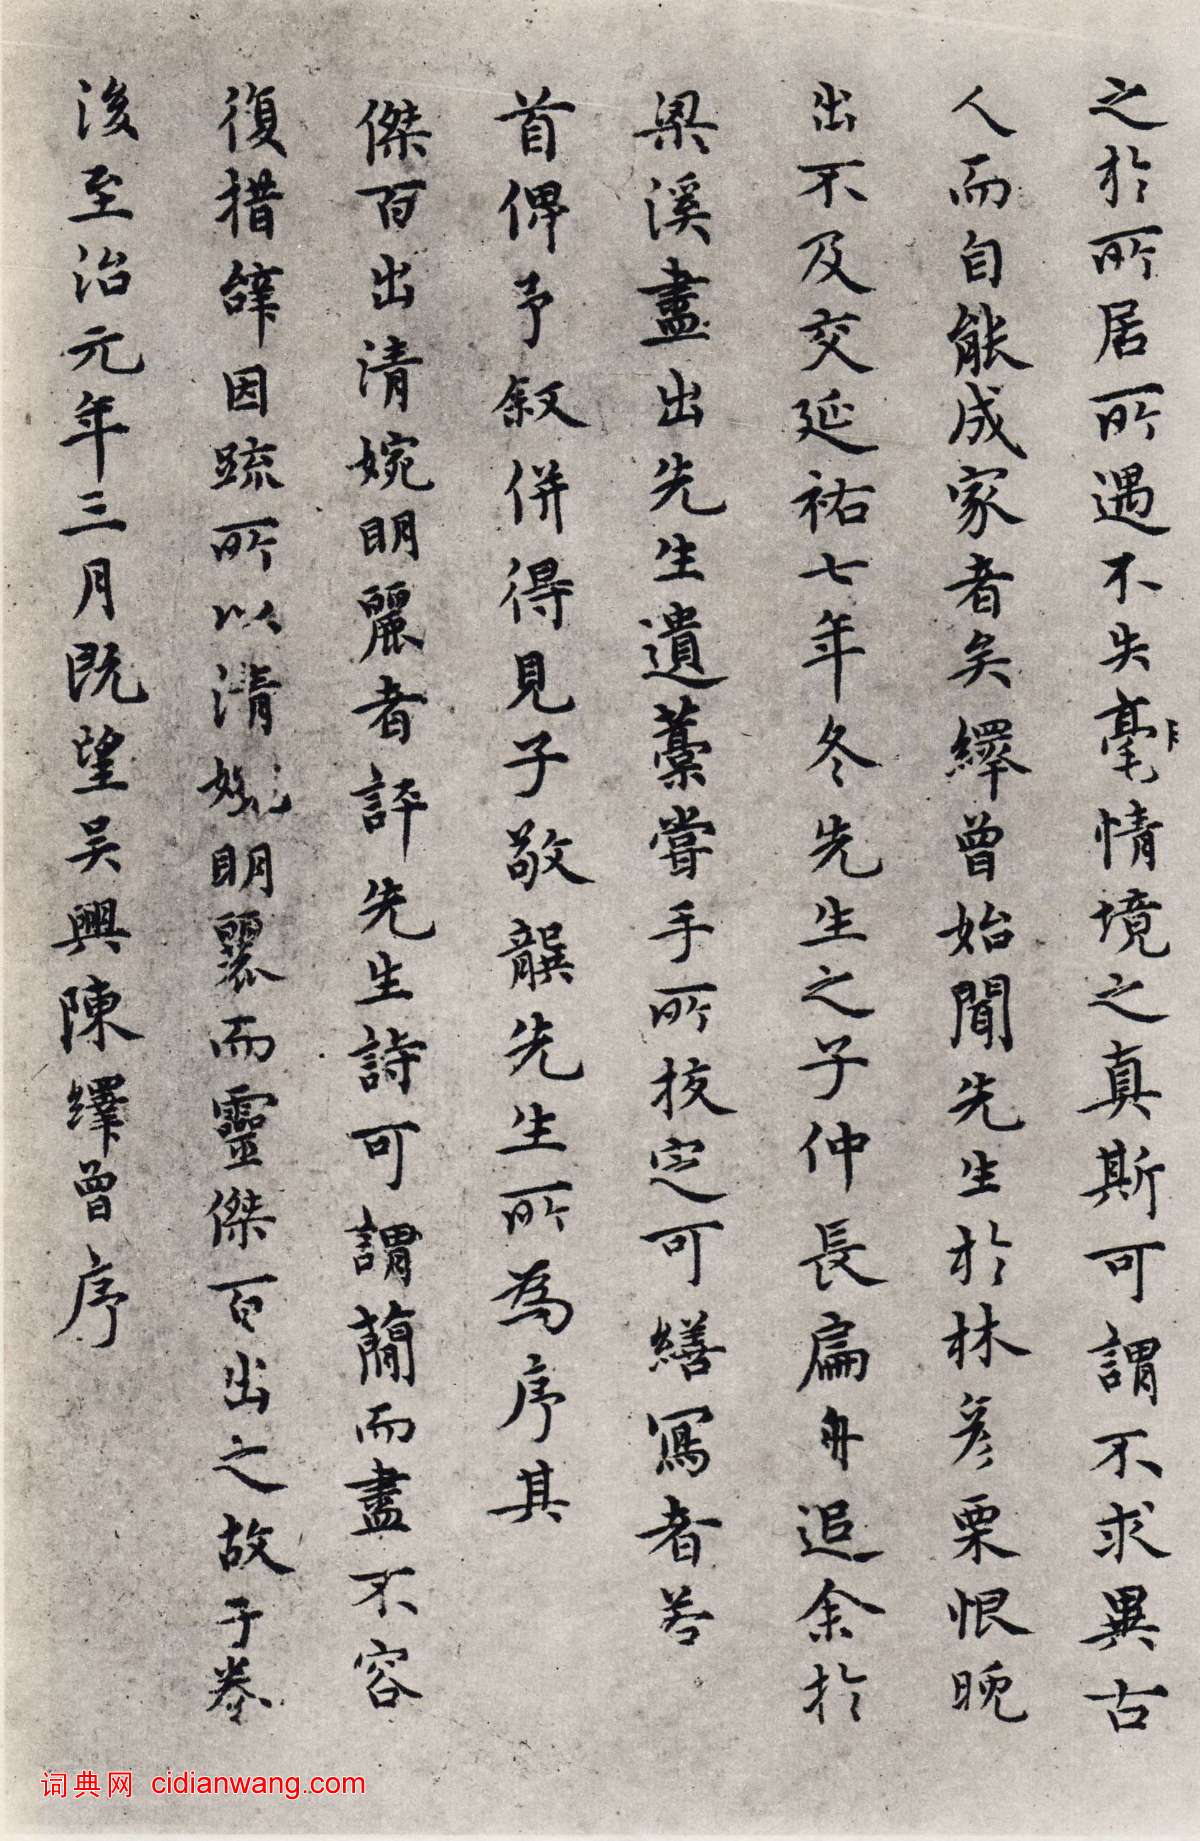 之於所居所遇不失毫情境之真斯可謂不求異古
人而自能成家者矣繹曾始聞先生於林彦栗恨晚
出不及交延祐七年冬先生之子仲長扁舟追余於
梁溪盡出先生遺藁嘗手所挍定可繕寫者若
首俾予叙併得見子敬龔先生所為序其
傑百出清婉明麗者評先生詩可謂蕳而盡不容
復措辝因䟽所以清婉明麗而靈傑百出之故于卷
後至治元年三月既望吴興陳繹曾序
词典网 cidianwang.com